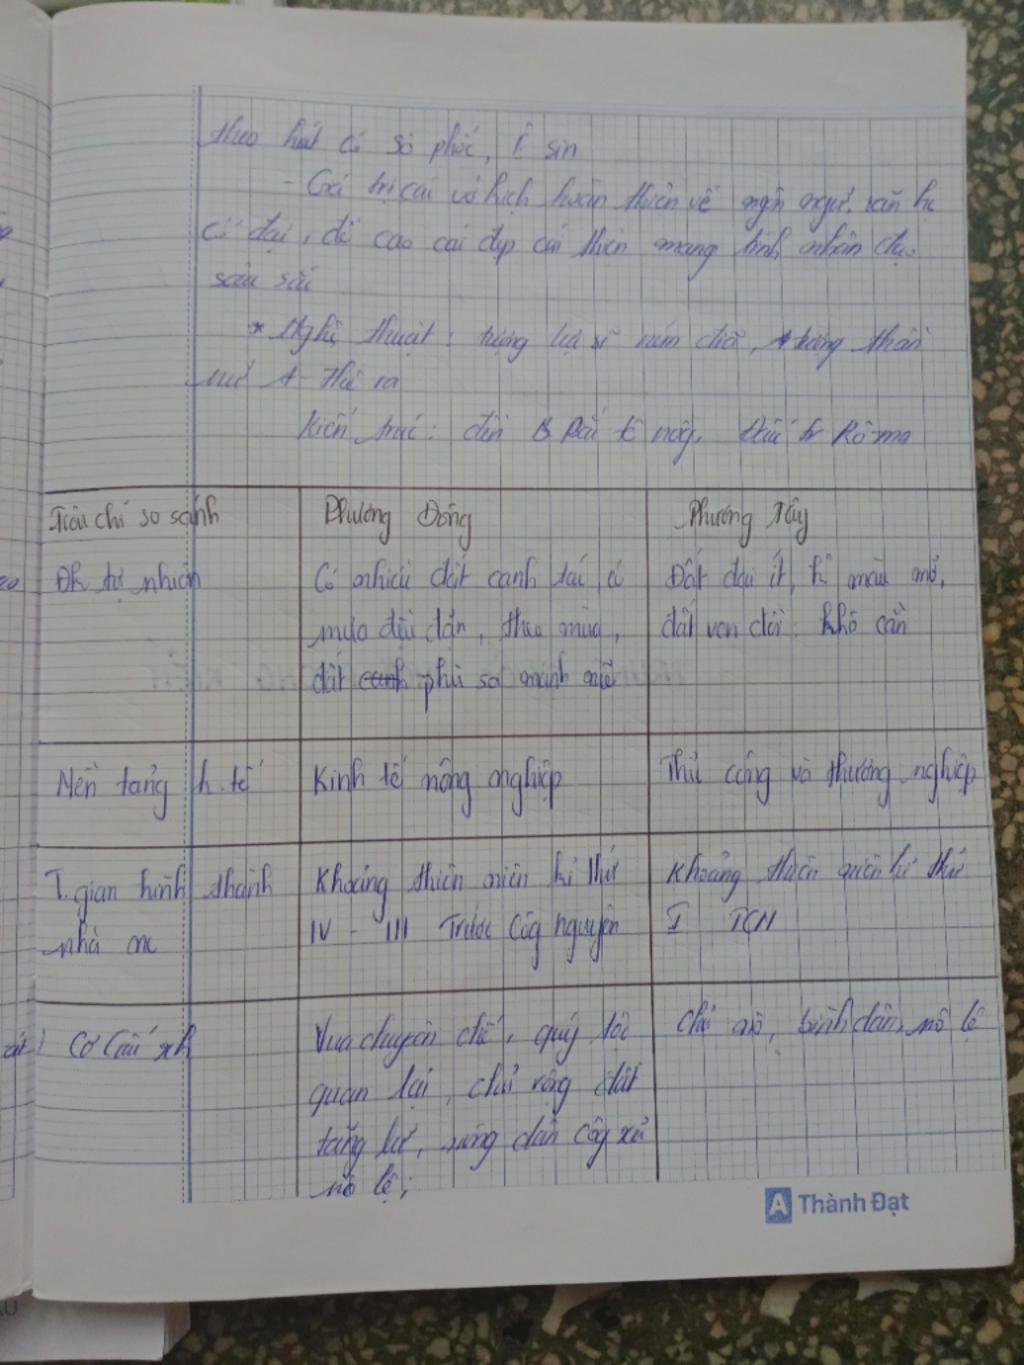 theo hút có Sô phốc, Ê sin
- Giá trị các vở kịch hoàn thiện về ngôn ngữ. văn h
Cổ đại, đề cao cái đẹp cái thiện mang tính nhân đạo
sâu sắc
* Nghệ thuật: tượng lực sĩ ném đĩa, tượng thần
nữ A-Thê na
Kiến trúc: đền Pác tê nông, Đấu tr Rô-ma
Tiêu chí so sánh
Phương Đông
Phương Tây
Đk tự nhiên
Có nhiều đất canh tác, có
mưa đều đặn, theo mùa,
đất phù sa mạnh mẽ
Đất đai ít, k màu mỡ,
đất ven đồi: khô cằn
Nền tảng k.tế
Kinh tế nông nghiệp
Thủ công và thương nghiệp
T.gian hình thành
nhà nc
Khoảng thiên niên kỉ thứ
IV - III Trước Côg nguyên
Khoảng thiên niên kỉ thứ
I TCN
Cơ Cấu xh
Vua chuyên chế, quý tộc
quan lại, chủ rộng đất
tăng lữ, nông dân Côg xã
nô lệ;
chủ nô, bình dân, nô lệ
Thành Đạt